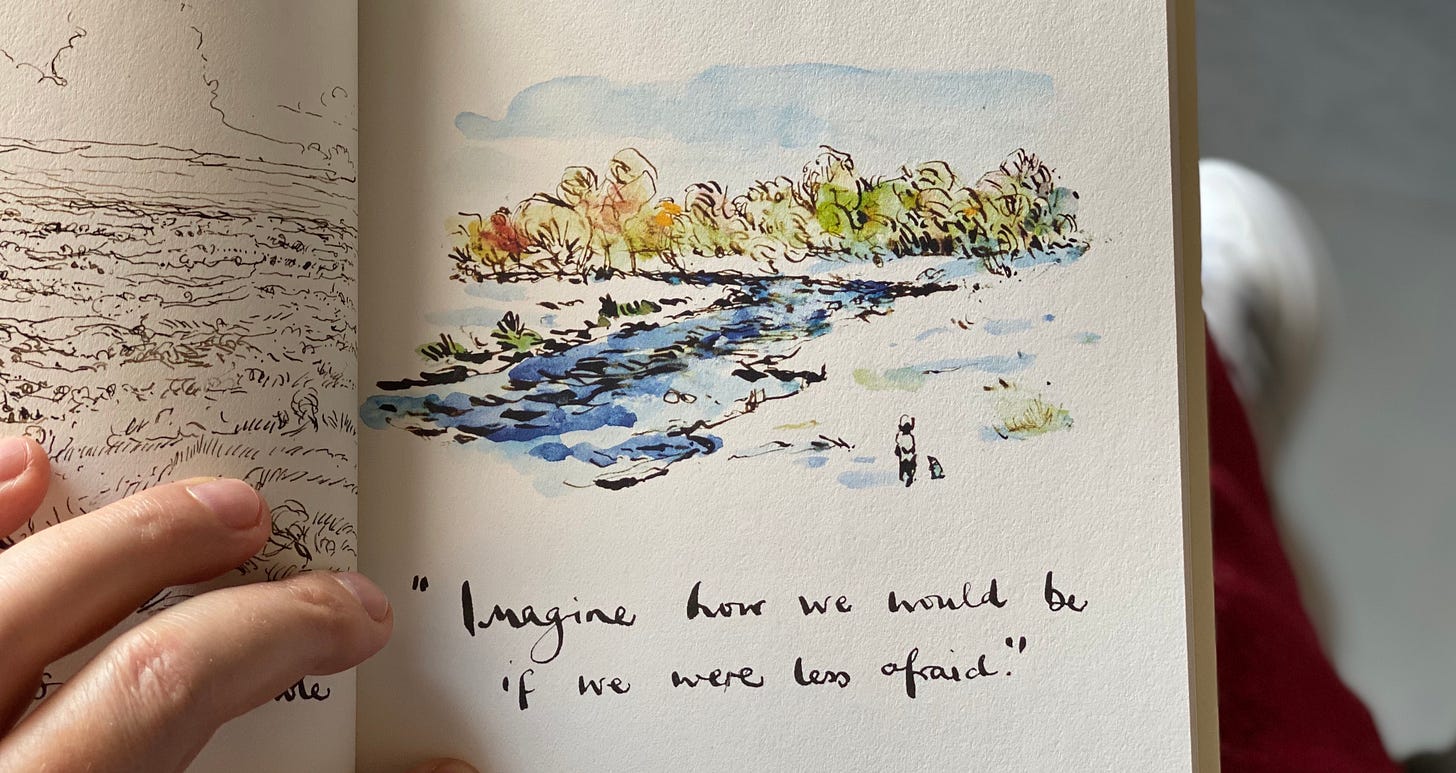 "Imagine how we would be
if we were less afraid."